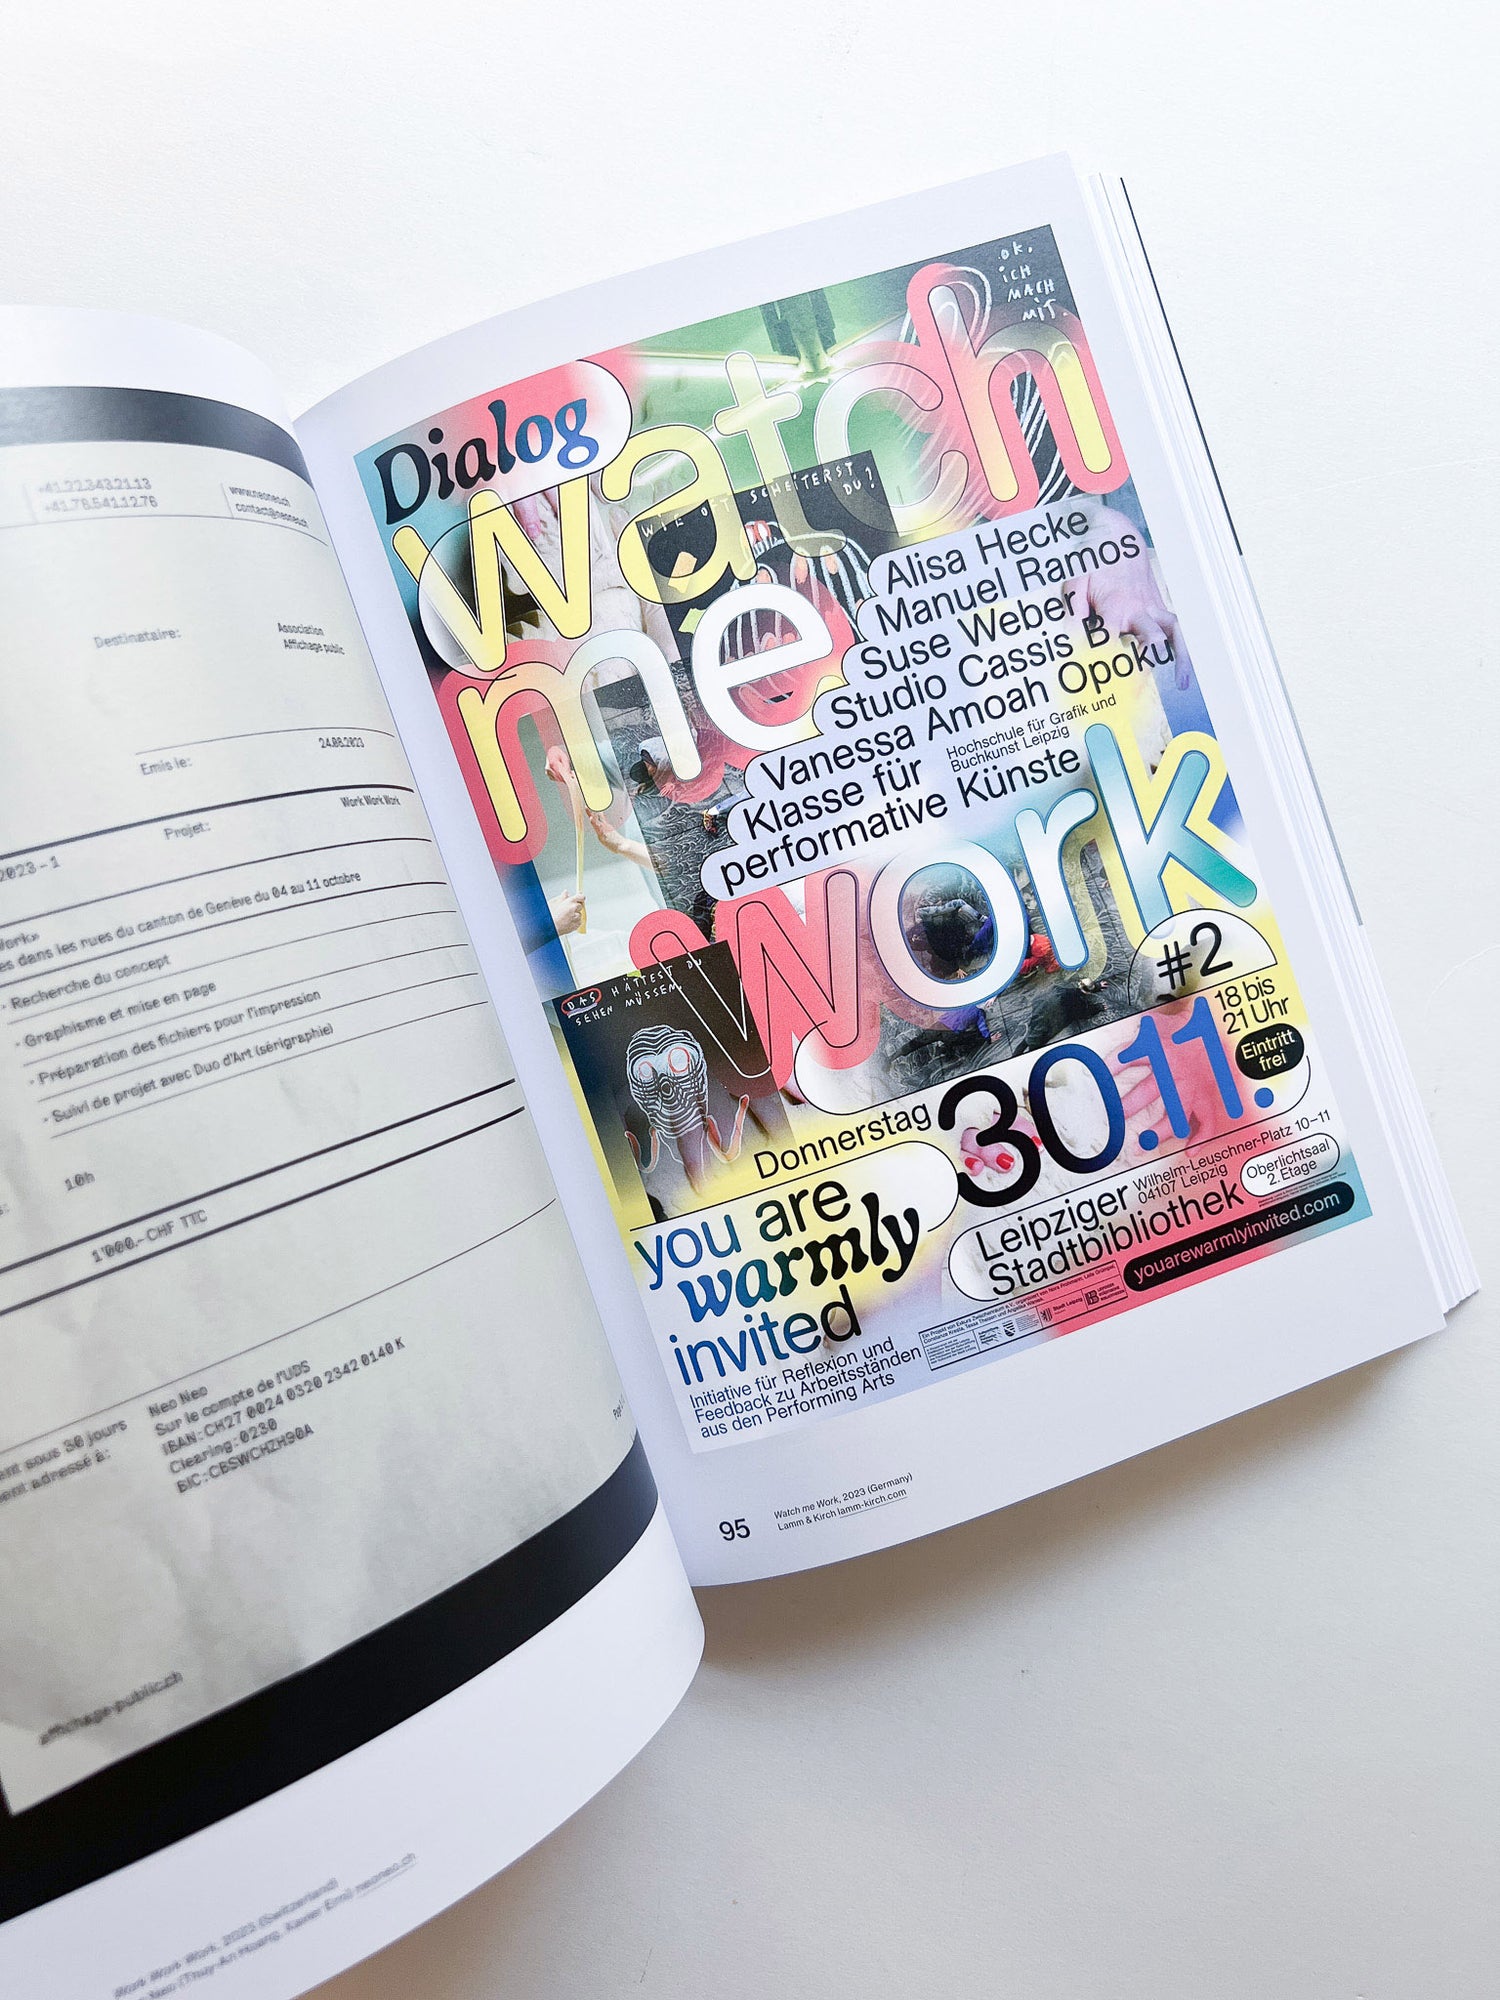 +41.22.343.21.13
+41.78.541.12.76
www.neoneo.ch
contact@neoneo.ch
Destinataire:
Association
Affichage public
Emis le:
24.08.2023
Projet:
Work Work Work
2023–1
Work»
es dans les rues du canton de Genève du 04 au 11 octobre
- Recherche du concept
- Graphisme et mise en page
- Préparation des fichiers pour l'impression
- Suivi de projet avec Duo d'Art (sérigraphie)
10h
1'000.– CHF TTC
ant sous 30 jours
ent adressé à:
Neo Neo
Sur le compte de l'UBS
IBAN: CH27 0024 0320 2342 0140 K
Clearing: 0230
BIC:
affichage-public.ch
Work Work Work, 2023 (Switzerland)
(Thuy-An Hoang, Xavier Erni) neoneo.ch
OK,
ICH
MACH
MIT.
Dialog
watch
WIE OFT SCHEITERST
DU?
me
Alisa Hecke
Manuel Ramos
Suse Weber
Studio Cassis B
Vanessa Amoah Opoku
Klasse für
performative Künste
Hochschule für Grafik und
Buchkunst Leipzig
work
#2
DAS HÄTTEST DU
SEHEN MÜSSEN
Donnerstag
30.11.
18 bis
21 Uhr
Eintritt
frei
you are
warmly
invited
Leipziger
Stadtbibliothek
Wilhelm-Leuschner-Platz 10–11
04107 Leipzig
Oberlichtsaal
2. Etage
youarewarmlyinvited.com
Initiative für Reflexion und
Feedback zu Arbeitsständen
aus den Performing Arts
Stadt Leipzig
95
Watch me Work, 2023 (Germany)
Lamm & Kirch lamm-kirch.com